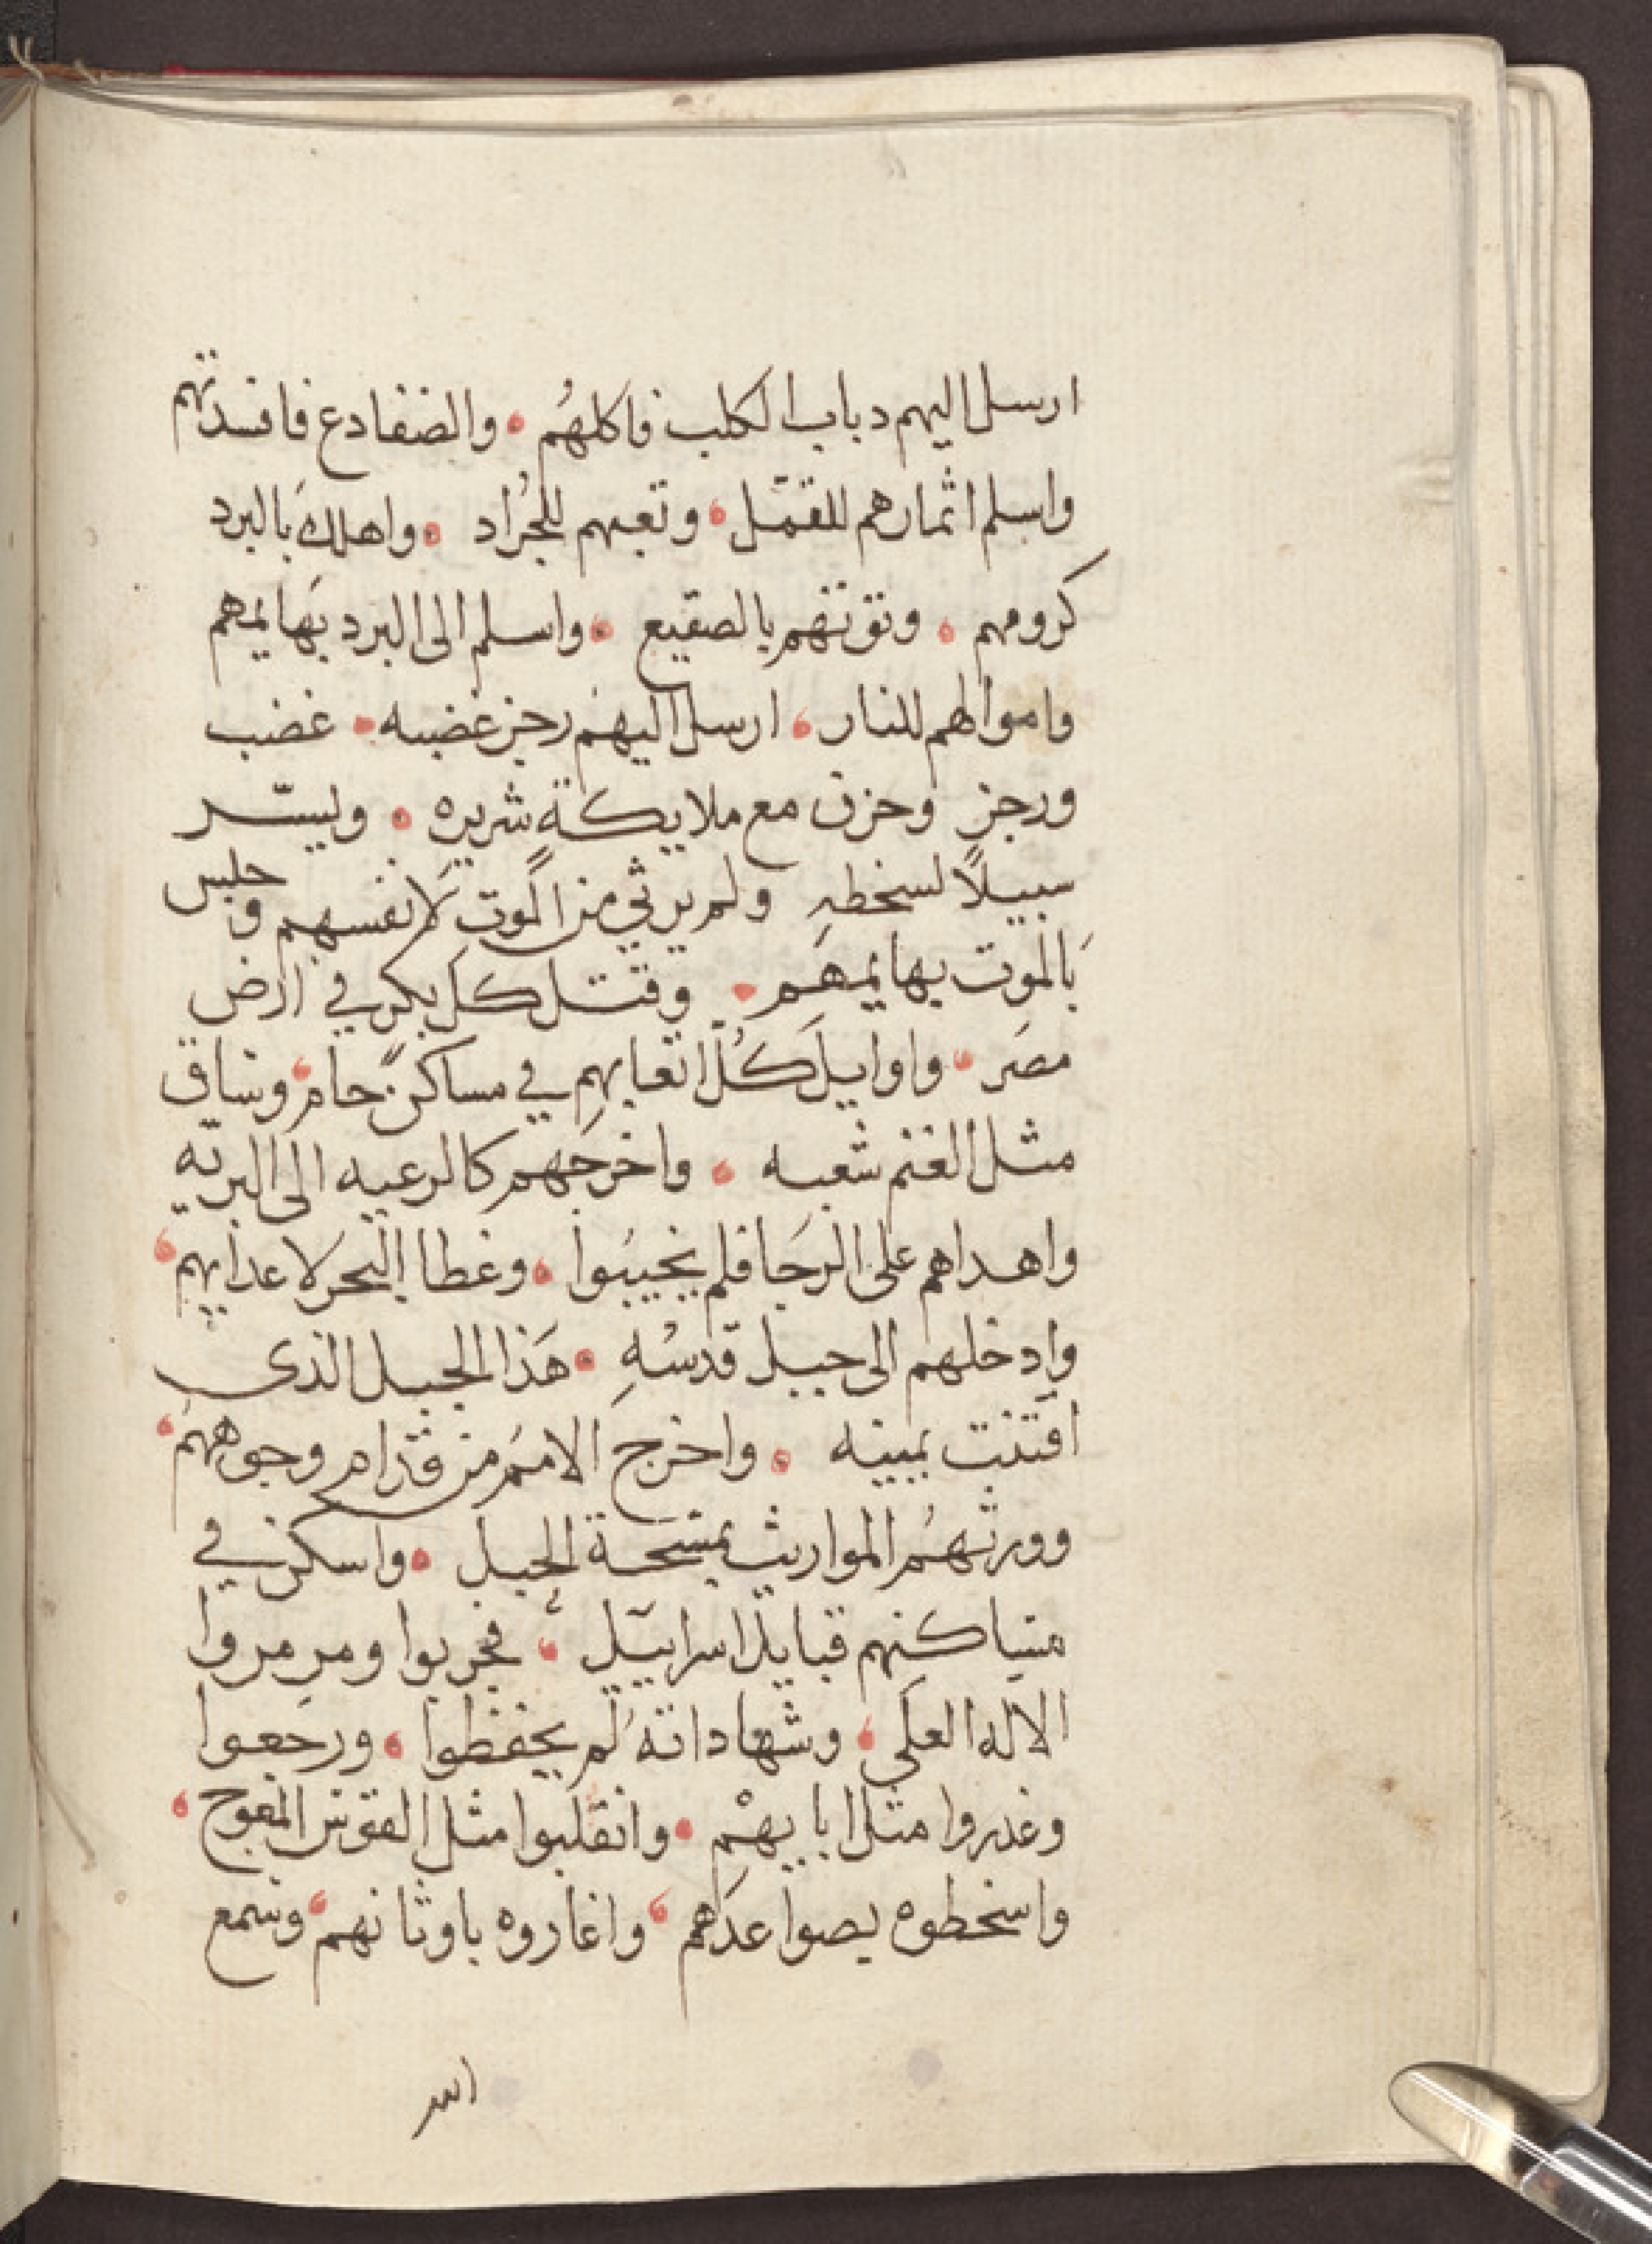 ارسل اليهم دباب الكلب فاكلهُم • والضفادع فافسدتهم
واسلم اثمارهم للقمّل • وتعبهم للجُراد • واهلك بالبرد
كرومهم • وتوتهم بالصقيع • واسلم الى البرد بهايمهم
واموالهم للنار • ارسل اليهم رجز غضبه • غضب
ورجزٍ وحزن مع ملايكةٍ شريره • وليسّر
سبيلاً لسخطهِ ولم يرثي من الموت لانفسهم وحبس
بالموت بهايمهم • وقتل كل بكرٍ في ارض
مصر • واوايل كُلّ اتعابهم في مساكن حام • وساق
مثل الغنم شعبه • واخرجهم كالرعيه الى البريّه
واهداهم على الرجا فلم يخيبُوا • وغطا البحر لاعدايهم •
وادخلهم الى جبل قدسُهِ • هَذا الجبل الذي
اقتنت يمينه • واخرج الامم من قدام وجوههم •
وورثهُم المواريث بمسَحة الحبل • واسكن في
مساكنهم قبايل اسراييل • فجربوا ومرمروا
الاله العلي • وشهاداته لم يحفظوا • ورجعوا
وغدروا مثل ابايهمْ • وانقلبوا مثل القوس المعوج •
واسخطوه بصواعدهم • واغاروه باوثانهم • وسمع
الله